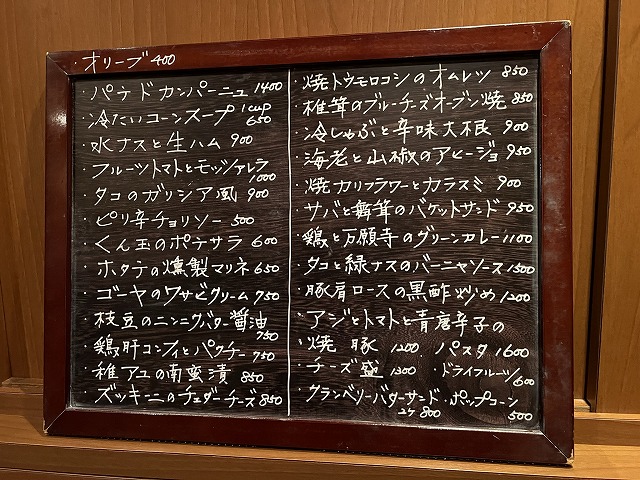 ・オリーブ 400
・パテドカンパーニュ 1400
・冷たいコーンスープ 1cup 650
・水ナスと生ハム 900
・フルーツトマトとモッツァレラ 1000
・タコのガリシア風 900
・ピリ辛チョリソー 500
・くん玉のポテサラ 600
・ホタテの燻製マリネ 650
・ゴーヤのワサビクリーム 750
・枝豆のニンニクバター醤油 750
・鶏肝コンフィとパクチー 750
・稚アユの南蛮漬 850
・ズッキーニのチェダーチーズ 850
・焼トウモロコシのオムレツ 850
・椎茸のブルーチーズオーブン焼 850
・冷しゃぶと辛味大根 900
・海老と山椒のアヒージョ 950
・焼カリフラワーとカラスミ 900
・サバと舞茸のバケットサンド 950
・鶏と万願寺のグリーンカレー 1100
・タコと緑ナスのバーニャソース 1500
・豚肩ロースの黒酢炒め 1200
・アジとトマトと青唐辛子の
・焼豚 1200 パスタ 1600
・チーズ盛 1300 ・ドライフルーツ 600
・クランベリーバターサンド 2ケ 800 ・ポップコーン 500